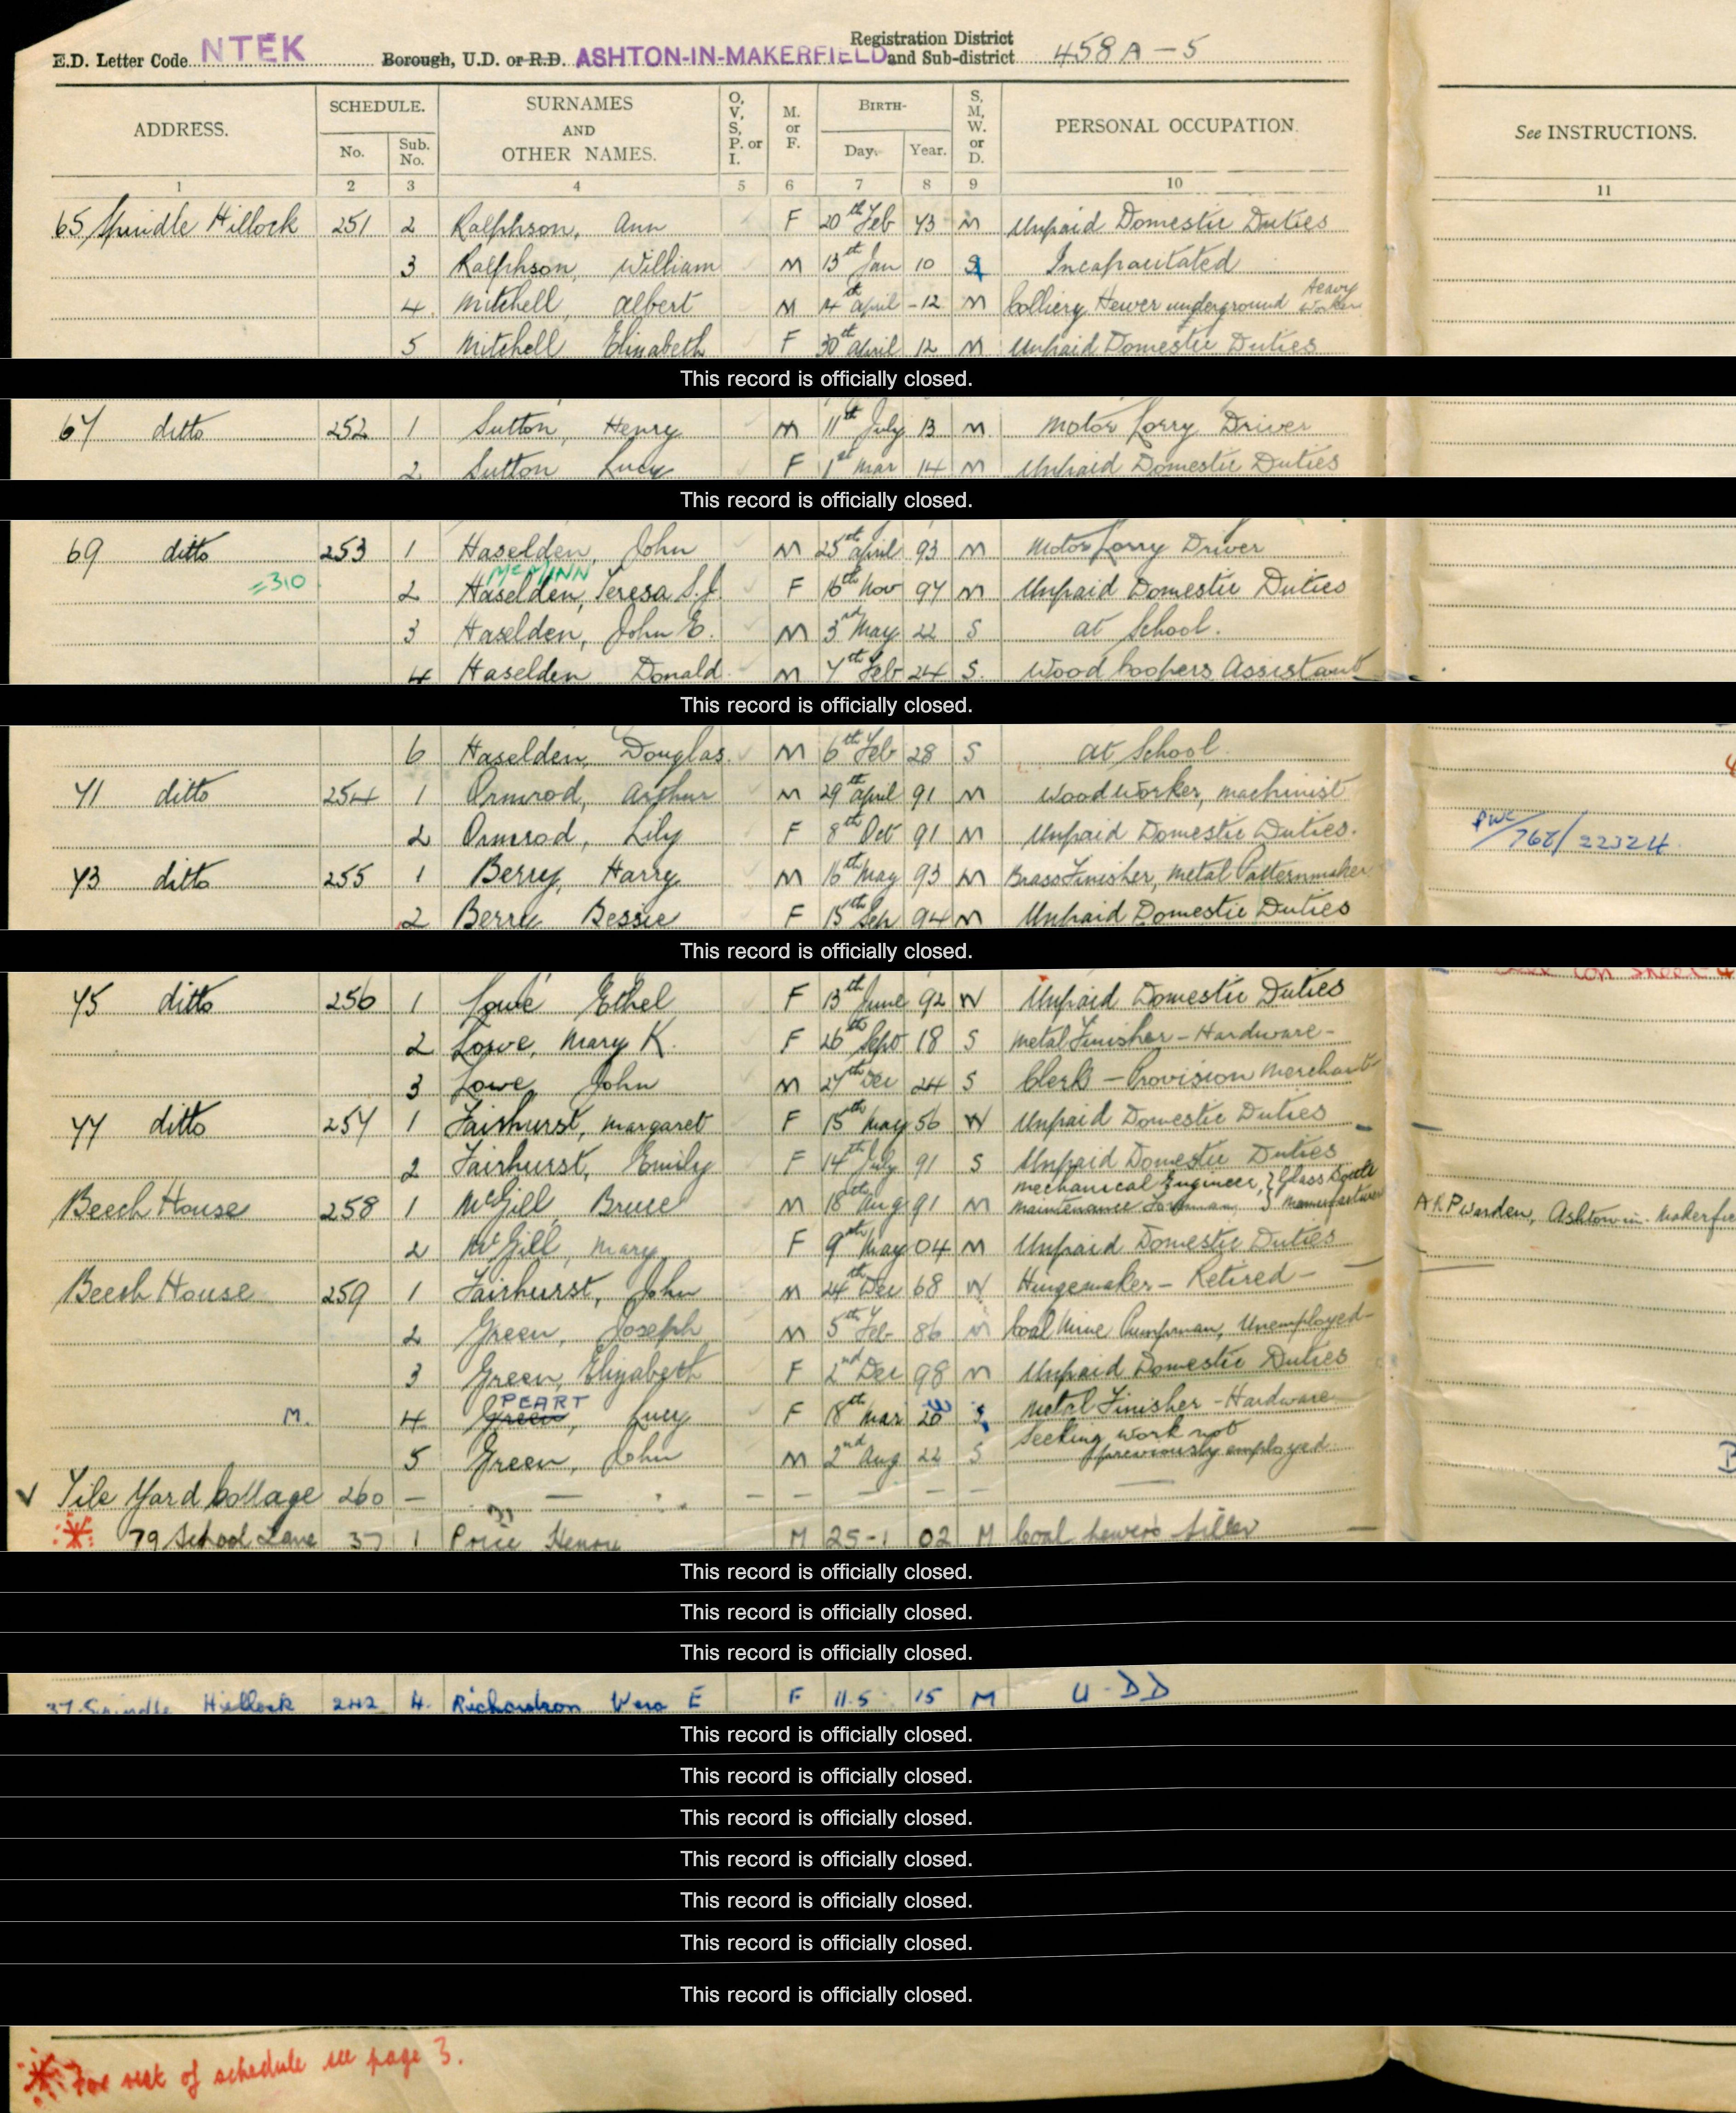 E.D. Letter Code NTEK Borough, U.D. or R.D. ASHTON-IN-MAKERFIELD Registration District and Sub-district 458A-5
ADDRESS. SCHEDULE. No. Sub. No. SURNAMES AND OTHER NAMES. O, V, S, P. or I. M. or F. BIRTH- Day. Year. S, M, W. or D. PERSONAL OCCUPATION. See INSTRUCTIONS.
1 2 3 4 5 6 7 8 9 10 11
65 Spindle Hillock 251 2 Ralphson, Ann F 20th Feb 73 M Unpaid Domestic Duties
3 Ralphson, William M 13th Jan 10 S Incapacitated
4 Mitchell, Albert M 4th April -12 M Colliery Hewer underground Heavy Worker
5 Mitchell Elizabeth F 30th April 12 M Unpaid Domestic Duties
This record is officially closed.
67 ditto 252 1 Sutton, Henry M 11th July 13 M. Motor Lorry Driver
2 Sutton Lucy F 1st Mar 14 M Unpaid Domestic Duties
This record is officially closed.
69 ditto 253 1 Haselden, John M 25th April 93 M Motor Lorry Driver
McMINN
=310 2 Haselden, Teresa S.J. F 16th Nov 97 M Unpaid Domestic Duties
3 Haselden, John E. M 3rd May 22 S at School.
4 Haselden Donald M 7th Feb 24 S. Wood Coopers Assistant
This record is officially closed.
6 Haselden, Douglas M 6th Feb 28 S at School
71 ditto 254 1 Ormrod, Arthur M 29th April 91 M Woodworker, machinist
2 Ormrod, Lily F 8th Oct 91 M Unpaid Domestic Duties. 22324
73 ditto 255 1 Berry, Harry M 16th May 93 M Brass Finisher, Metal Patternmaker
2 Berry Bessie F 15th Sep 94 M Unpaid Domestic Duties
This record is officially closed.
75 ditto 256 1 Lowe Ethel F 13th June 92 W Unpaid Domestic Duties
2 Lowe, Mary K. F 26th Sept 18 S Metal Finisher - Hardware -
3 Lowe John M 27th Dec 24 S Clerk - Provision Merchant
77 ditto 257 1 Fairhurst, Margaret F 15th May 56 W Unpaid Domestic Duties
2 Fairhurst, Emily F 14th July 91 S Unpaid Domestic Duties
Beech House 258 1 McGill, Bruce M 18th Aug 91 M Mechanical Engineer, Maintenance Foreman, } Glass Bottle Manufacturers ARP Warden, Ashton-in-Makerfie
2 McGill, Mary F 9th May 04 M Unpaid Domestic Duties
Beech House 259 1 Fairhurst, John M 24th Dec 68 W Hingemaker - Retired -
2 Green, Joseph M 5th Feb 86 M Coal Mine Pumpman, Unemployed
3 Green, Elizabeth F 2nd Dec 98 M Unpaid Domestic Duties
PEART
M. 4 Green, Lucy F 18th Mar 20 S Metal Finisher - Hardware
5 Green, John M 2nd Aug 22 S Seeking work not previously employed
✓ Tile Yard Cottage 260 - - - - - - -
79 School Lane 37 1 Price Henry M 25-1 02 M Coal hewers filler
This record is officially closed.
This record is officially closed.
This record is officially closed.
37 Spindle Hillock 242 4. Richardson Vera E F 11.5 15 M U.D D
This record is officially closed.
This record is officially closed.
This record is officially closed.
This record is officially closed.
This record is officially closed.
This record is officially closed.
This record is officially closed.
For rest of schedule see page 3.